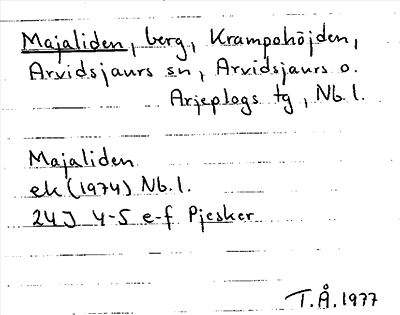 Majaliden, berg, Krampohöjden,
Arvidsjaurs sn, Arvidsjaurs o.
Arjeplogs tg, Nb.l.
Majaliden
ek (1974) Nb.l.
24J 4-5 e-f Pjesker
T.Å. 1977